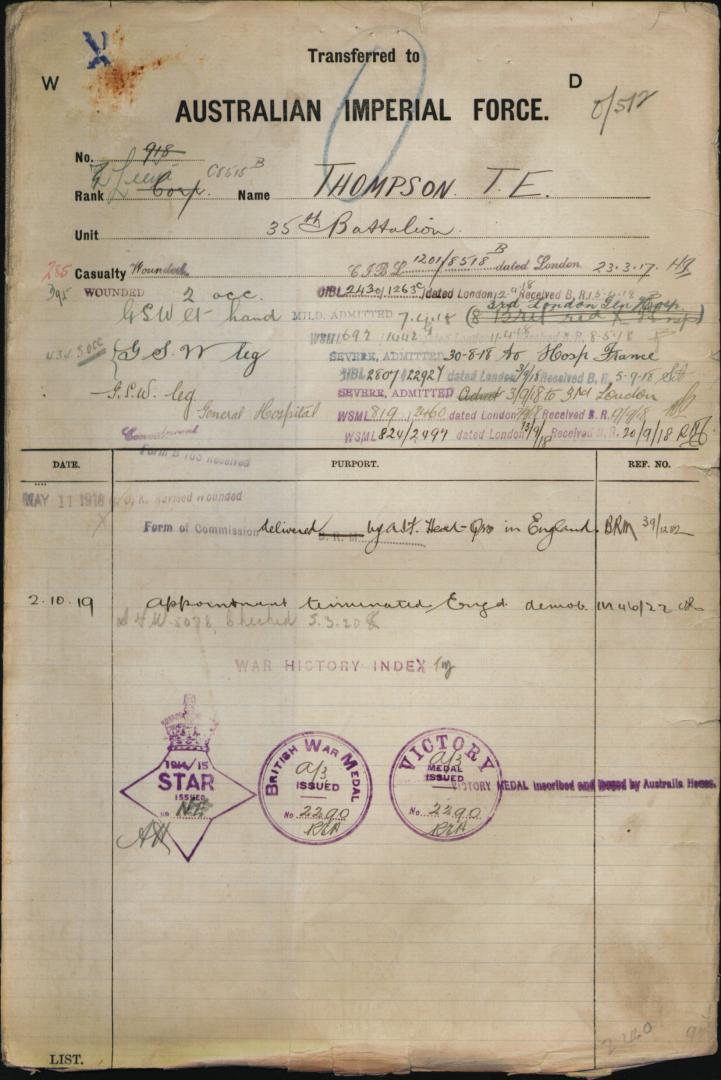 Transferred to
W D
AUSTRALIAN IMPERIAL FORCE.
No. 918
Rank Corp. Name THOMPSON. T. E.
Unit 35th Battalion
285 Casualty Wounded 1201/8518 B dated London 23.3.17
395 WOUNDED 2 occ. 2430/1263 dated London Received B.R.
GSW lt hand MILD, ADMITTED 7.4.18 3rd London Gen Hosp.
WSML 692 dated London 11.4.18 Received B.R. 8-5-18
434 3 occ G S W leg SEVERE, ADMITTED 30-8-18 to Hosp France
2807/22927 dated London Received B.R. 5-9-18
G.S.W. leg SEVERE, ADMITTED Admtd 3/9/18 to 3rd London
General Hospital WSML 819 2460 dated London Received B.R.
WSML 824/2497 dated London 13/9/18 Received B.R. 20/9/18
Form B 103 Received
DATE. PURPORT. REF. NO.
MAY 11 1918 Advised Wounded
Form of Commission delivered by A.I.F. Head-Qrs in England. BRM
2.10.19 appointment terminated Engd demob
5.3.20
WAR HISTORY INDEX
1914/15
STAR
ISSUED
No NE
BRITISH WAR MEDAL
ISSUED
No 2290
VICTORY
MEDAL
ISSUED
No 2290
VICTORY MEDAL inscribed and issued by Australia House.
LIST.